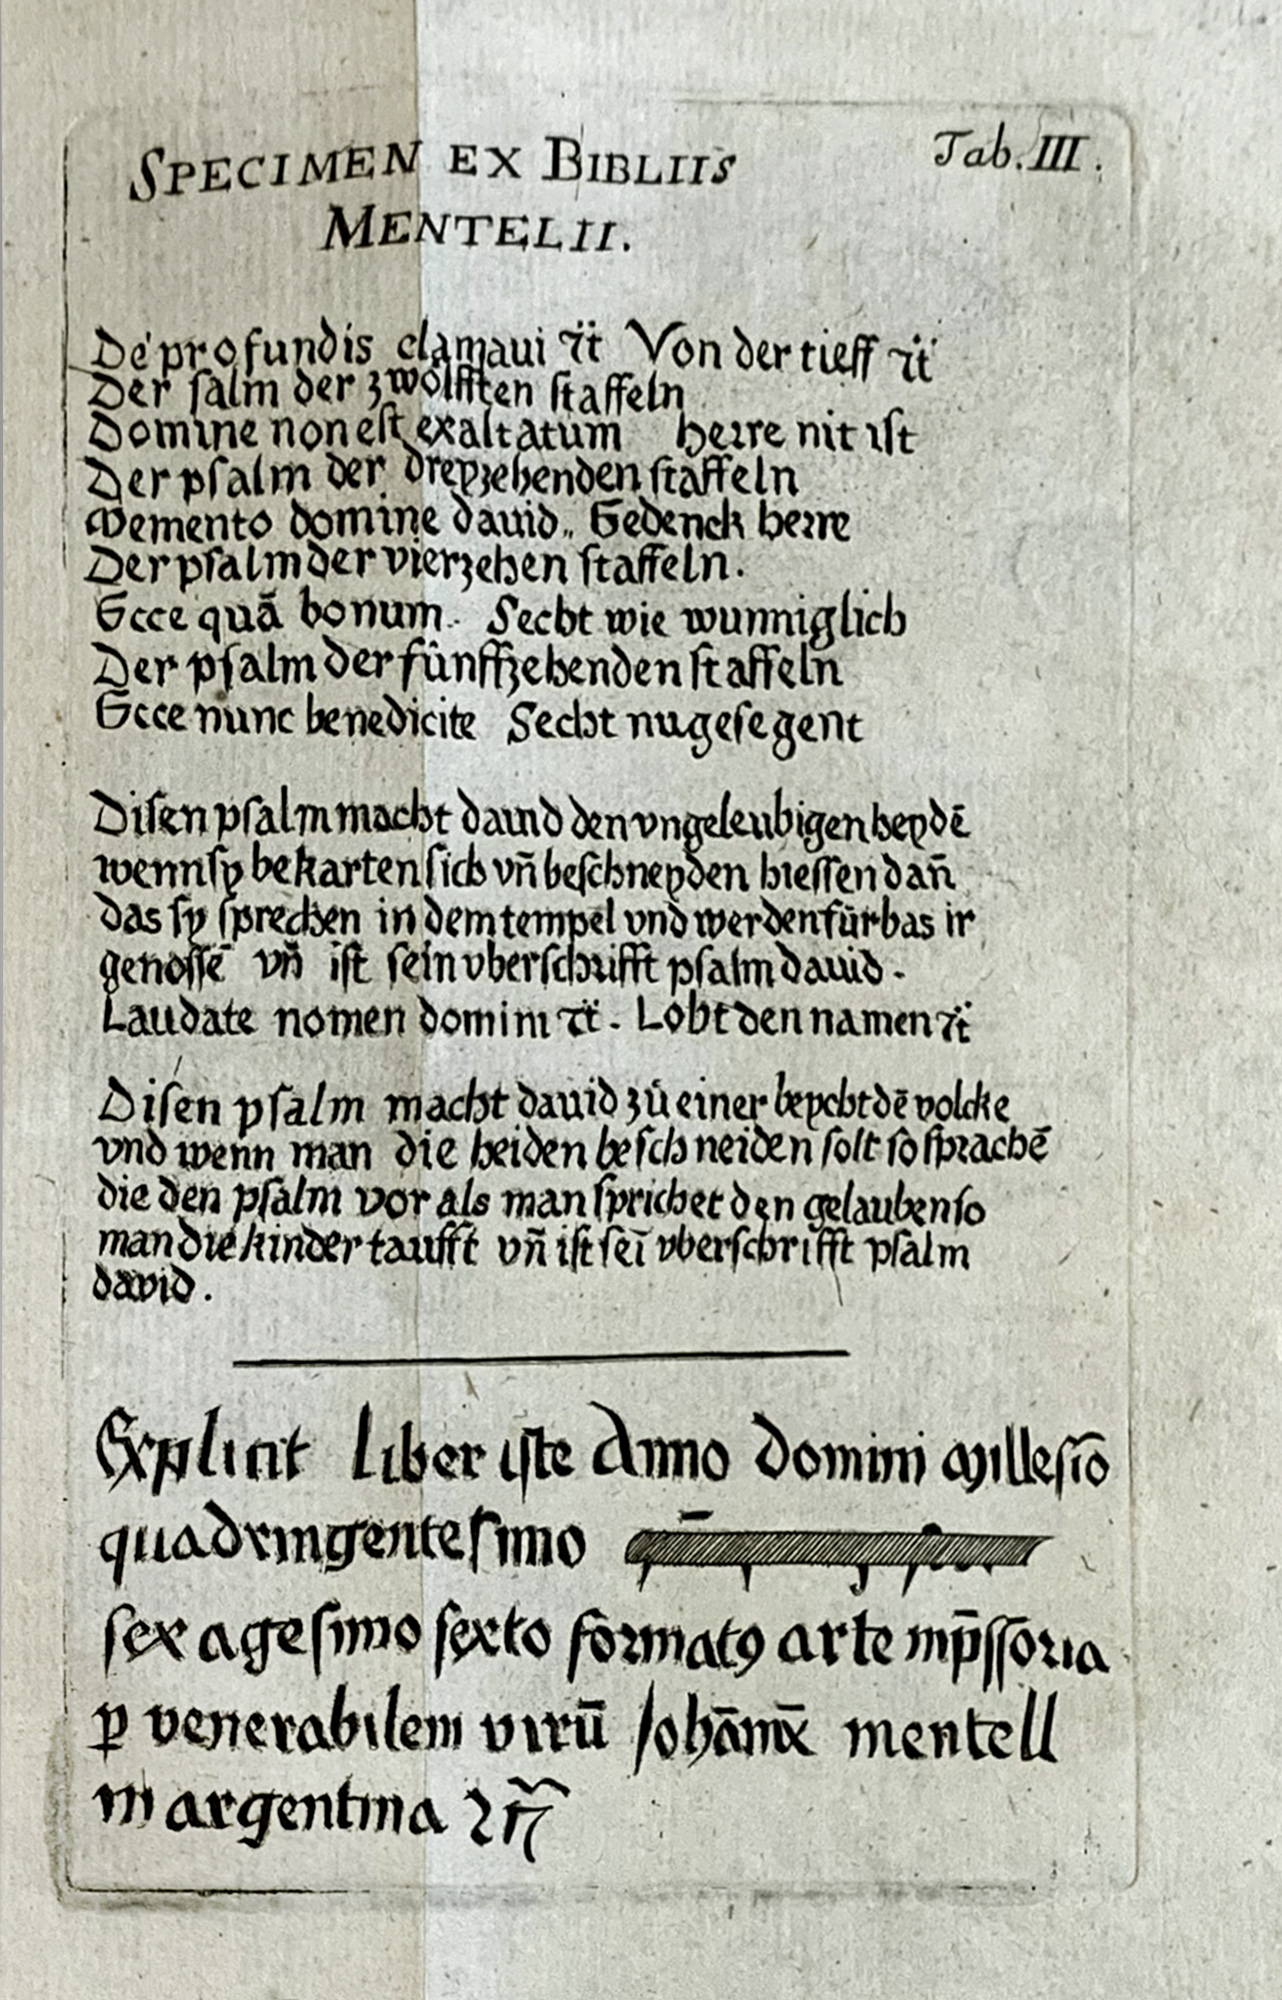 SPECIMEN EX BIBLIIS
Tab. III.
MENTELII.
De profundis clamaui ⁊c̈ Von der tieff ⁊c̈
Der salm der zwolfften staffeln
Domine non est exaltatum herre nit ist
Der psalm der dreyzehenden staffeln
Memento domine dauid. Gedenck herre
Der psalm der vierzehen staffeln.
Ecce quā bonum. Secht wie wunniglich
Der psalm der fûnffzehenden staffeln
Ecce nunc benedicite Secht nu gesegent
Disen psalm macht dauid den vngeleubigen heydē
wenn sy bekarten sich vn̄ beschneyden hiessen dan̄
das sy sprechen in dem tempel vnd werden fúrbas ir
genossē vn̄ ist sein vberschrifft psalm dauid.
Laudate nomen domini ⁊c̈. Lobt den namen ⁊c̈
Disen psalm macht dauid zů einer beycht dē volcke
vnd wenn man die heiden beschneiden solt so sprachē
die den psalm vor als man sprichet den gelauben so
man die kinder taufft vn̄ ist seī vberschrifft psalm
david.
Explicit liber iste Anno domini Millesīo
quadringentesimo
sexagesimo sexto formatꝯ arte imp̄ssōria
ꝑ venerabilem virū Johānē mentell
in argentina